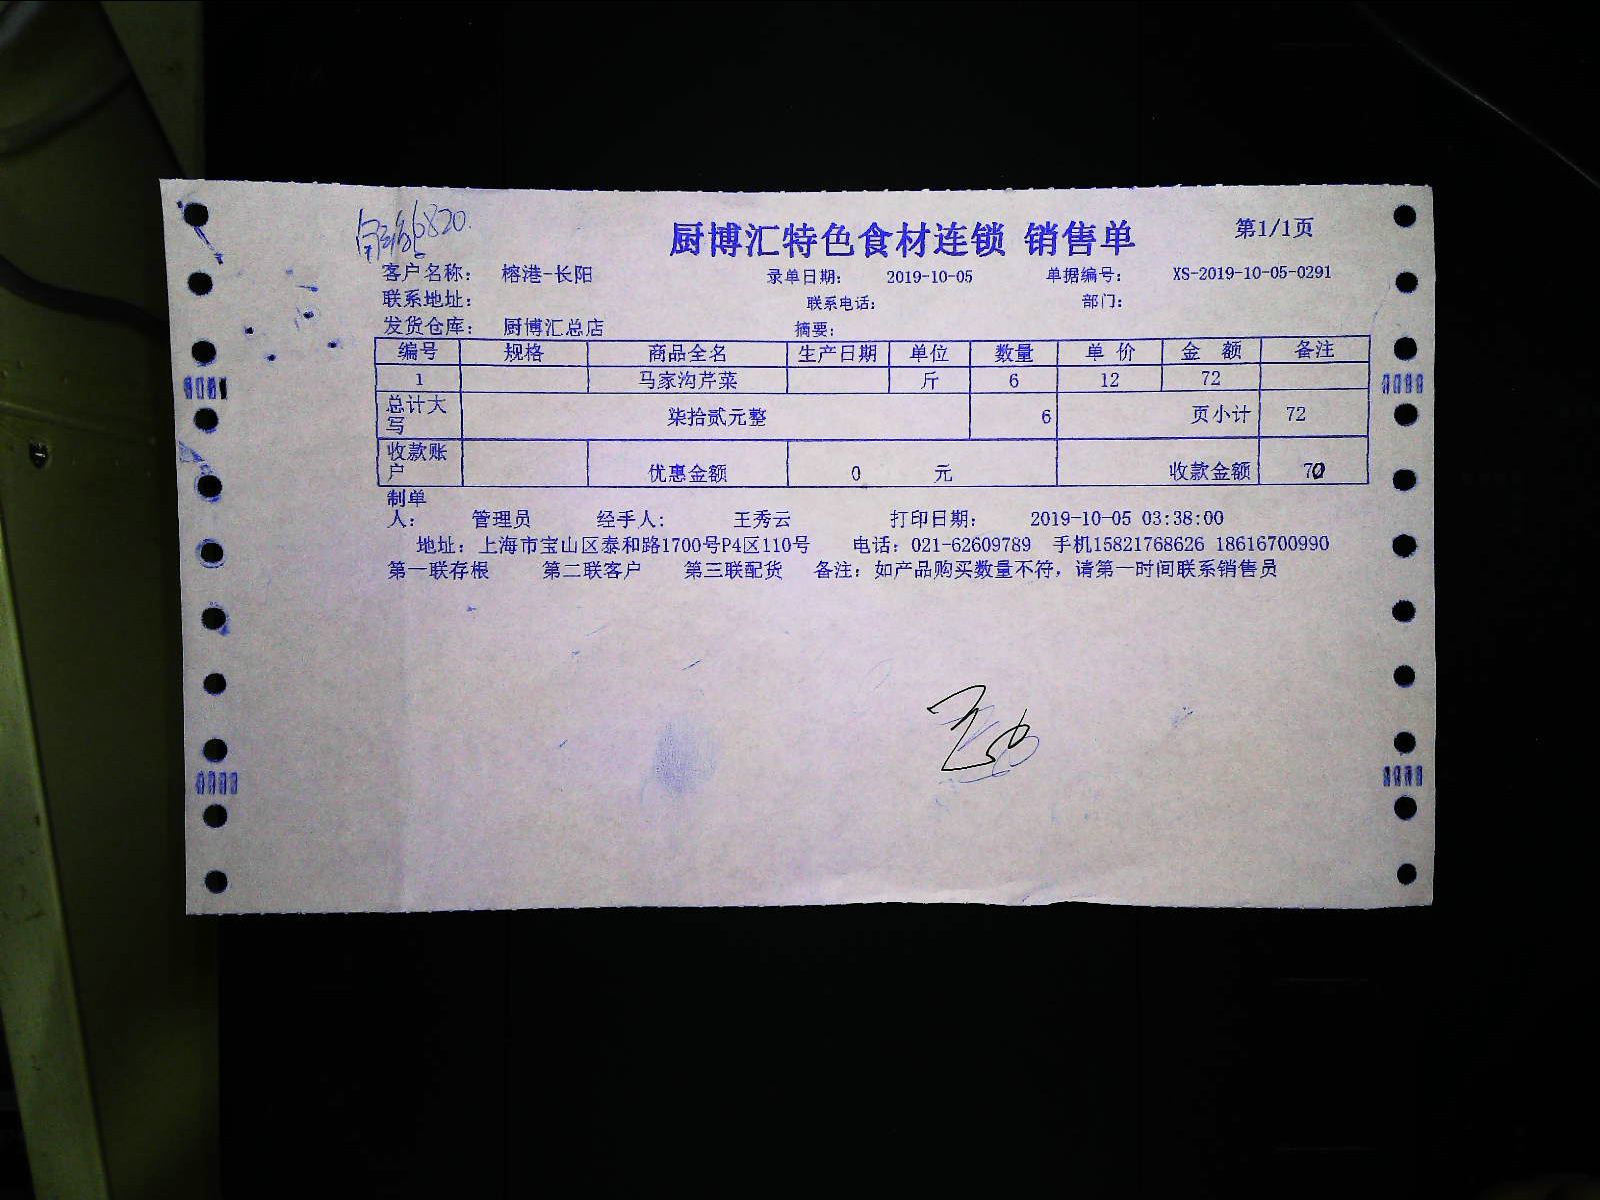 6820.
厨博汇特色食材连锁 销售单 第1/1页
客户名称： 榕港-长阳 录单日期： 2019-10-05 单据编号： XS-2019-10-05-0291
联系地址： 联系电话： 部门：
发货仓库： 厨博汇总店 摘要：
编号 规格 商品全名 生产日期 单位 数量 单 价 金 额 备注
1 马家沟芹菜 斤 6 12 72
总计大写 柒拾贰元整 6 页小计 72
收款账户 优惠金额 0 元 收款金额 70
制单人： 管理员 经手人： 王秀云 打印日期： 2019-10-05 03:38:00
地址：上海市宝山区泰和路1700号P4区110号 电话：021-62609789 手机15821768626 18616700990
第一联存根 第二联客户 第三联配货 备注：如产品购买数量不符，请第一时间联系销售员